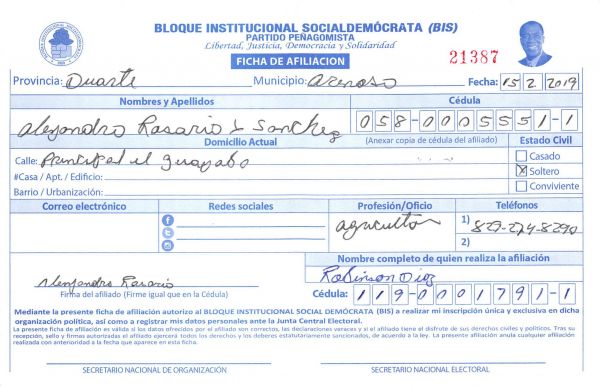 BLOQUE INSTITUCIONAL SOCIALDEMÓCRATA (BIS)
PARTIDO PEÑAGOMISTA
Libertad, Justicia, Democracia y Solidaridad
FICHA DE AFILIACION
21387
Provincia: Duarte Municipio: Arenoso Fecha: 15 2 2019
Nombres y Apellidos Cédula
Alejandro Rosario Sanchez 058-0005551-1
(Anexar copia de cédula del afiliado)
Domicilio Actual Estado Civil
Calle: Principal el guayabo
Casado
#Casa / Apt. / Edificio: Soltero
Barrio / Urbanización: Conviviente
Correo electrónico Redes sociales Profesión/Oficio Teléfonos
agricultor 1) 829-274-8290
2)
Nombre completo de quien realiza la afiliación
Robinson Diaz
Alenjandro Rosario
Firma del afiliado (Firme igual que en la Cédula) Cédula: 119-0001791-1
Mediante la presente ficha de afiliación autorizo al BLOQUE INSTITUCIONAL SOCIAL DEMÓCRATA (BIS) a realizar mi inscripción única y exclusiva en dicha
organización política, así como a registrar mis datos personales ante la Junta Central Electoral.
La presente ficha de afiliación es válida si los datos ofrecidos por el afiliado son correctos, las declaraciones veraces y si el afiliado tiene el disfrute de sus derechos civiles y políticos. Tras su
recepción, sello y firmas autorizadas el afiliado ejercerá todos los derechos y los deberes estatutariamente sancionados, de acuerdo a la ley. La presente afiliación anula cualquier afiliación
realizada con anterioridad a la fecha que aparece en esta ficha.
SECRETARIO NACIONAL DE ORGANIZACIÓN SECRETARIO NACIONAL ELECTORAL